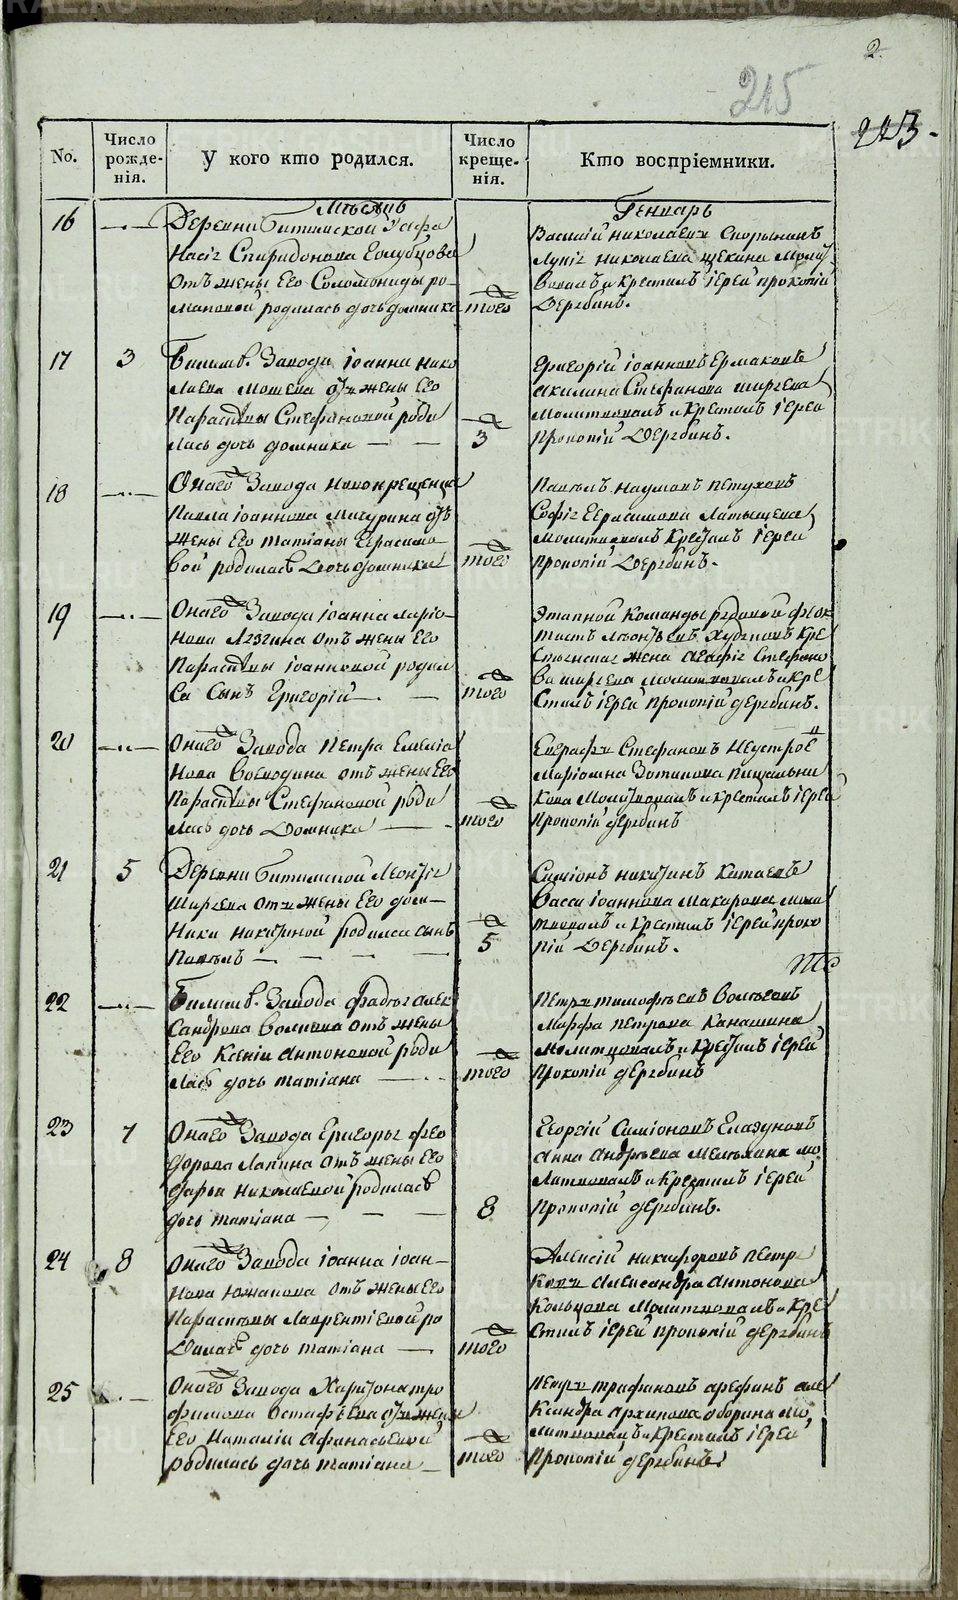 2.
215
223.
No.
Число рожде-нія.
У кого кто родился.
Число креще-нія.
Кто воспріемники.
Мѣсяцъ
Генварь
16
Деревни Битимской Гафа
насія Спиридонова Голубцова
отъ жены его Соломониды ро-
мановой родилась дочь домника
того
Василій николаевъ Спорынинъ
николаева щекина Молит
вовалъ и крестилъ іерей прокопій
Дерябинъ.
17
3
Билимб. Завода іоанна нико
лаева Мотева отъ жены его
Парасковы Стефановой роди
лась дочь домника
3
Григорій іоанновъ Ермаковъ
акилина Стефанова ширяева
Молитвовалъ и крестилъ іерей
Прокопій Дерябинъ.
18
Онаго Завода новокрещенца
Павла іоаннова Мичурина отъ
жены его татіаны Герасимо
вой родилась дочь домника
того
Павелъ наумовъ петуховъ
Софія Герасимова Латышева
Молитвовалъ Крестилъ іерей
прокопій Дерябинъ.
19
Онаго Завода іоанна ларіо-
нова Лезгина отъ жены его
Парасковы іоанновой родил
ся Сынъ Григорій
того
Этапной Команды рядовой
жена агафія Стефано
ва ширяева молитвовалъ и кре
стилъ іерей прокопій дерябинъ.
20
Онаго Завода Петра Емеліа
нова Воеводина отъ жены его
Парасковы Стефановой роди
лась дочь Домника
того
Евграфъ Стефановъ Неустрое
Маріамна Зотикова пищальни
кова Молитвовалъ и крестилъ іерей
Прокопій дерябинъ
21
5
Деревни Битимской Леонтія
ширяева отъ жены его дом-
ники никитиной родился сынъ
Павелъ
5
Симіонъ никитинъ Китаевъ
Васса іоаннова Макарова моли
твовалъ и крестилъ іерей проко
пій Дерябинъ.
22
Билимб. Завода фадѣя алек
сандрова Волкова отъ жены
его Ксеніи антоновой роди
лась дочь татіана
того
Петръ тимофѣевъ
Марфа петрова Канашина
Молитвовалъ и крестилъ іерей
Прокопій дерябинъ
23
7
Онаго Завода Григорья фео
дорова Лапина отъ жены его
дарьи николаевой родилась
дочь татіана
8
Георгій Симіоновъ Глазуновъ
анна андрѣева Мелехина мо
литвовалъ и крестилъ іерей
Прокопій дерябинъ.
24
8
Онаго Завода іоанна іоан-
нова южакова отъ жены его
Парасковы лаврентіевой ро
дилась дочь татіана
того
Алексій никифоровъ петро
ковъ александра антонова
Кольцова Молитвовалъ и кре
стилъ іерей прокопій дерябинъ
25
Онаго Завода Харитона тро
фимова Остафѣева отъ жены
его Наталіи афанасьевой
родилась дочь татіана
того
Петръ трофимовъ арефинъ але
ксандра архипова оборина мо
литвовалъ и крестилъ іерей
Прокопій дерябинъ
METRIKI.GASO-URAL.RU